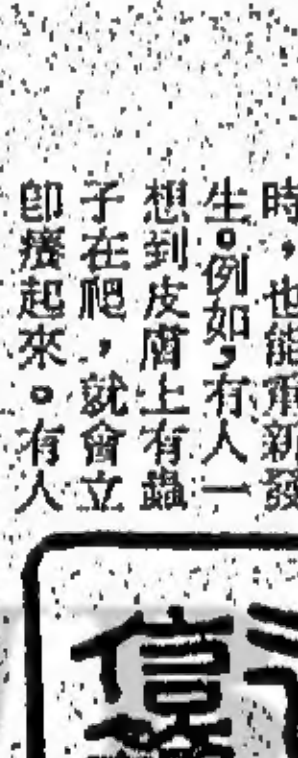 時，也能重新發
生。例如，有人一
想到皮膚上有蟲
子在爬，就會立
卽癢起來。有人
信